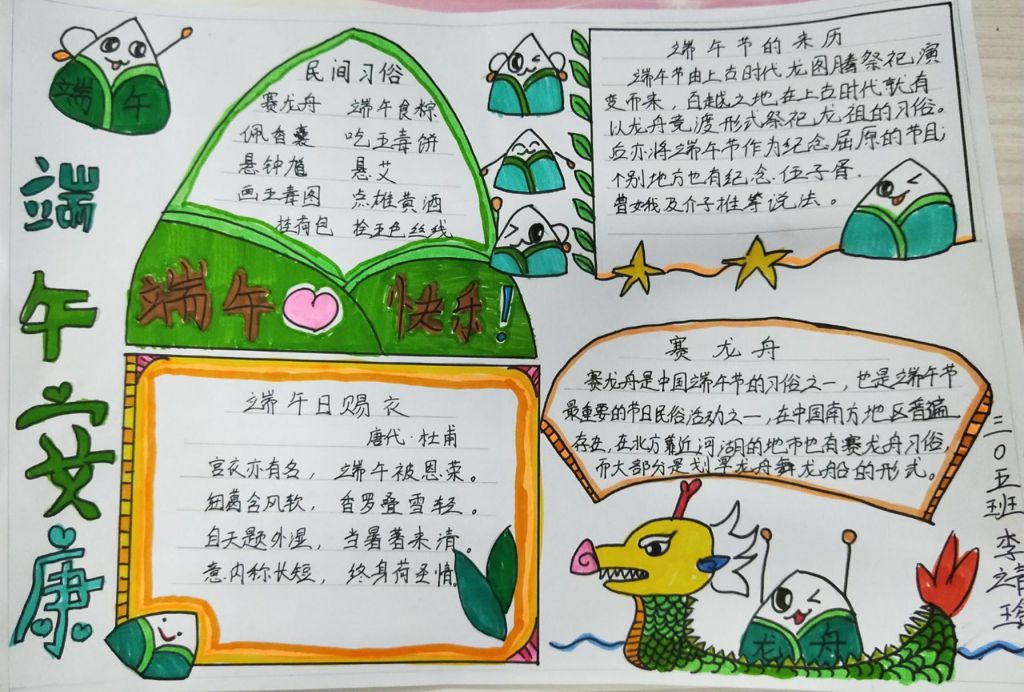 端午
端午安康
民间习俗
赛龙舟 端午食粽
佩香囊 吃五毒饼
悬钟馗 悬艾
画五毒图 点雄黄酒
挂荷包 拴五色丝线
端午快乐!
端午节的来历
端午节由上古时代龙图腾祭祀演
变而来，百越之地在上古时代就有
以龙舟竞渡形式祭祀龙祖的习俗。
后亦将端午节作为纪念屈原的节日；
个别地方也有纪念伍子胥.
曹娥及介子推等说法。
端午日赐衣
唐代·杜甫
宫衣亦有名，端午被恩荣。
细葛含风软，香罗叠雪轻。
自天题处湿，当暑著来清。
意内称长短，终身荷圣情。
赛龙舟
赛龙舟是中国端午节的习俗之一，也是端午节
最重要的节日民俗活动之一，在中国南方地区普遍
存在，在北方靠近河湖的地市也有赛龙舟习俗，
而大部分是划旱龙舟舞龙船的形式。
龙舟
三〇五班 李靖